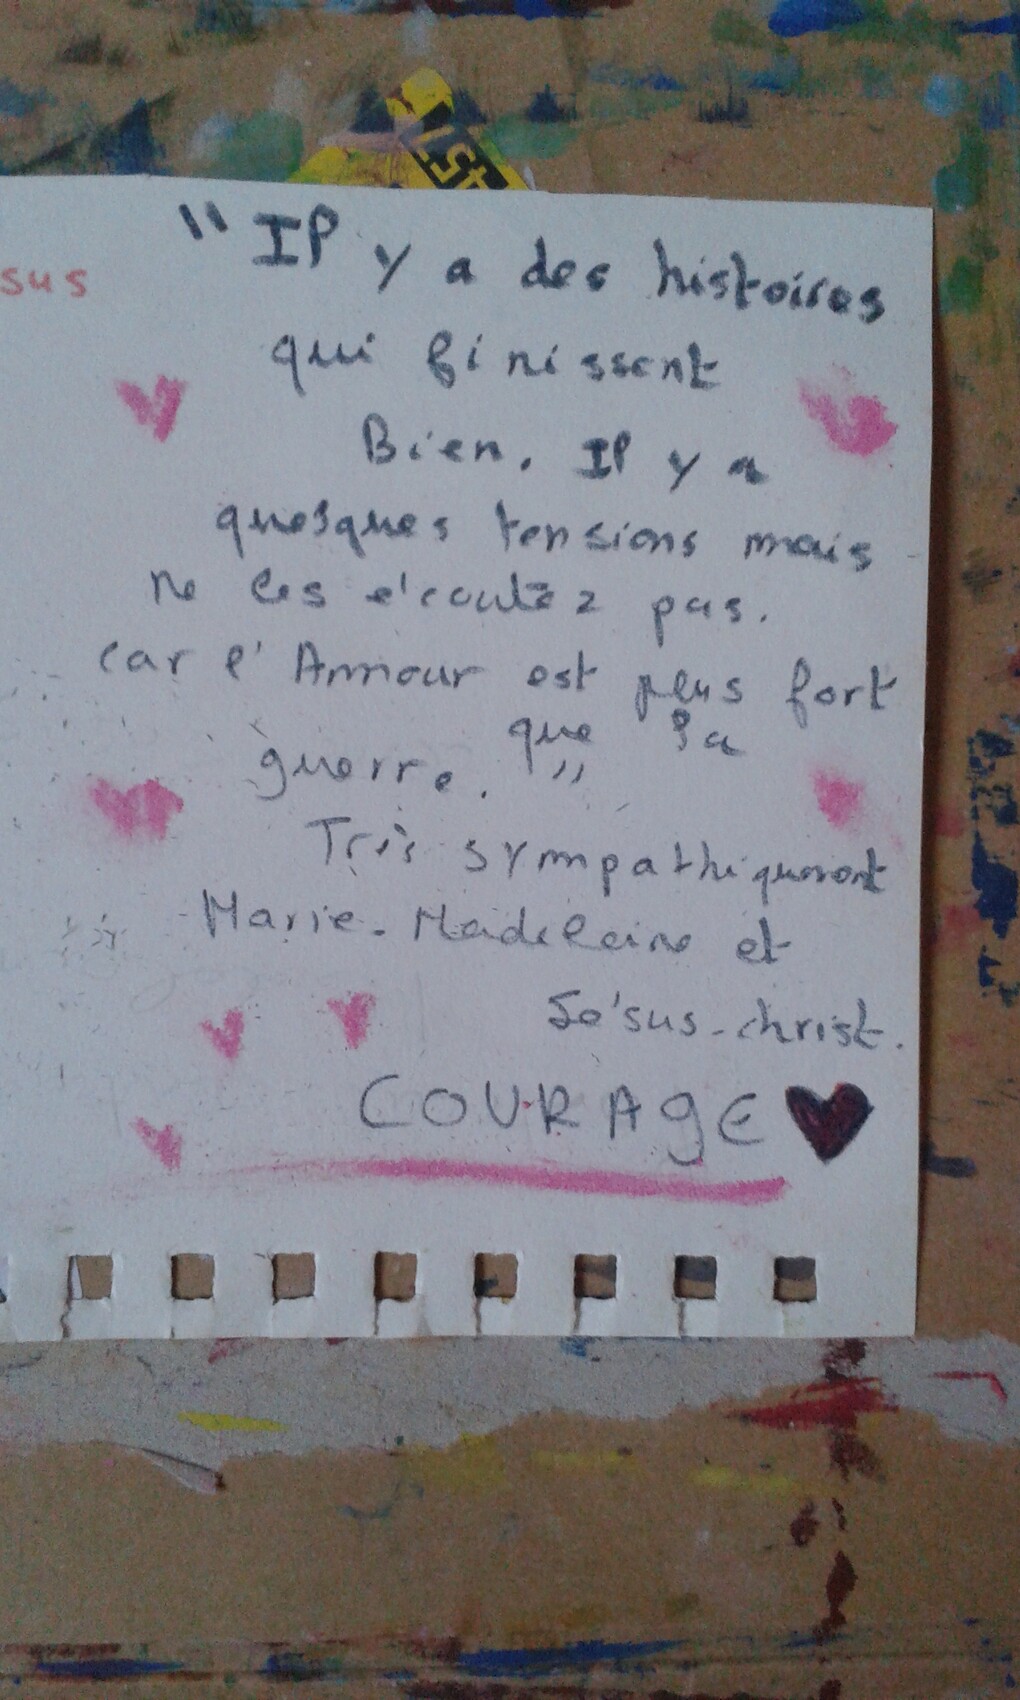 sus
"Il y a des histoires
qui finissent
Bien. Il y a
quesques tensions mais
ne les écoutez pas.
car l'Ammour est plus fort
que la
guerre."
Très sympathiquement
Marie-Madeleine et
Jésus-christ.
COURAgE